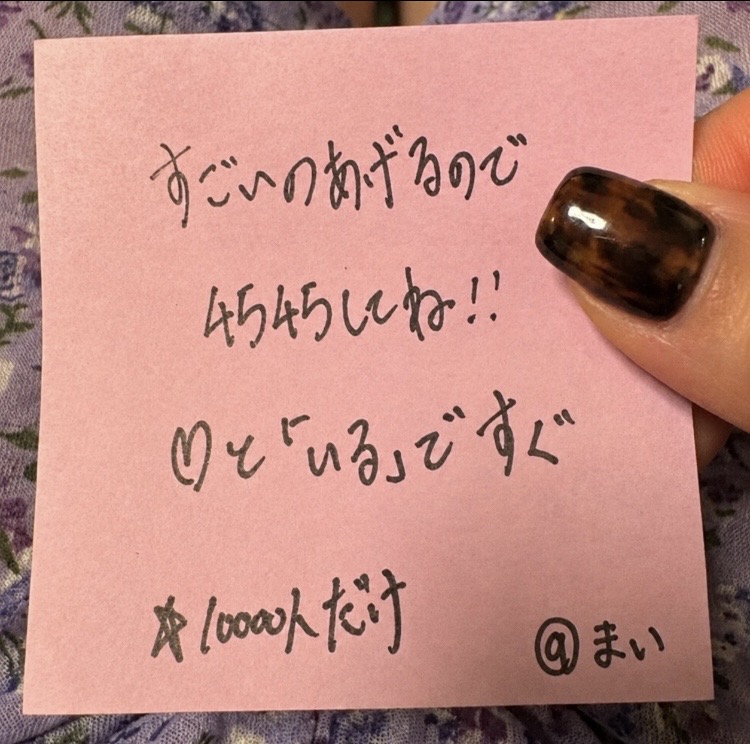 すごいのあげるので
4545してね!!
♡と「いる」ですぐ
☆10000人だけ
@まい